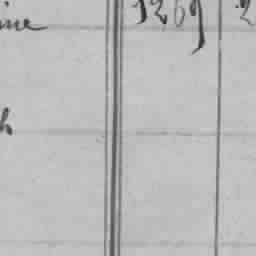 ine 1269 2
h